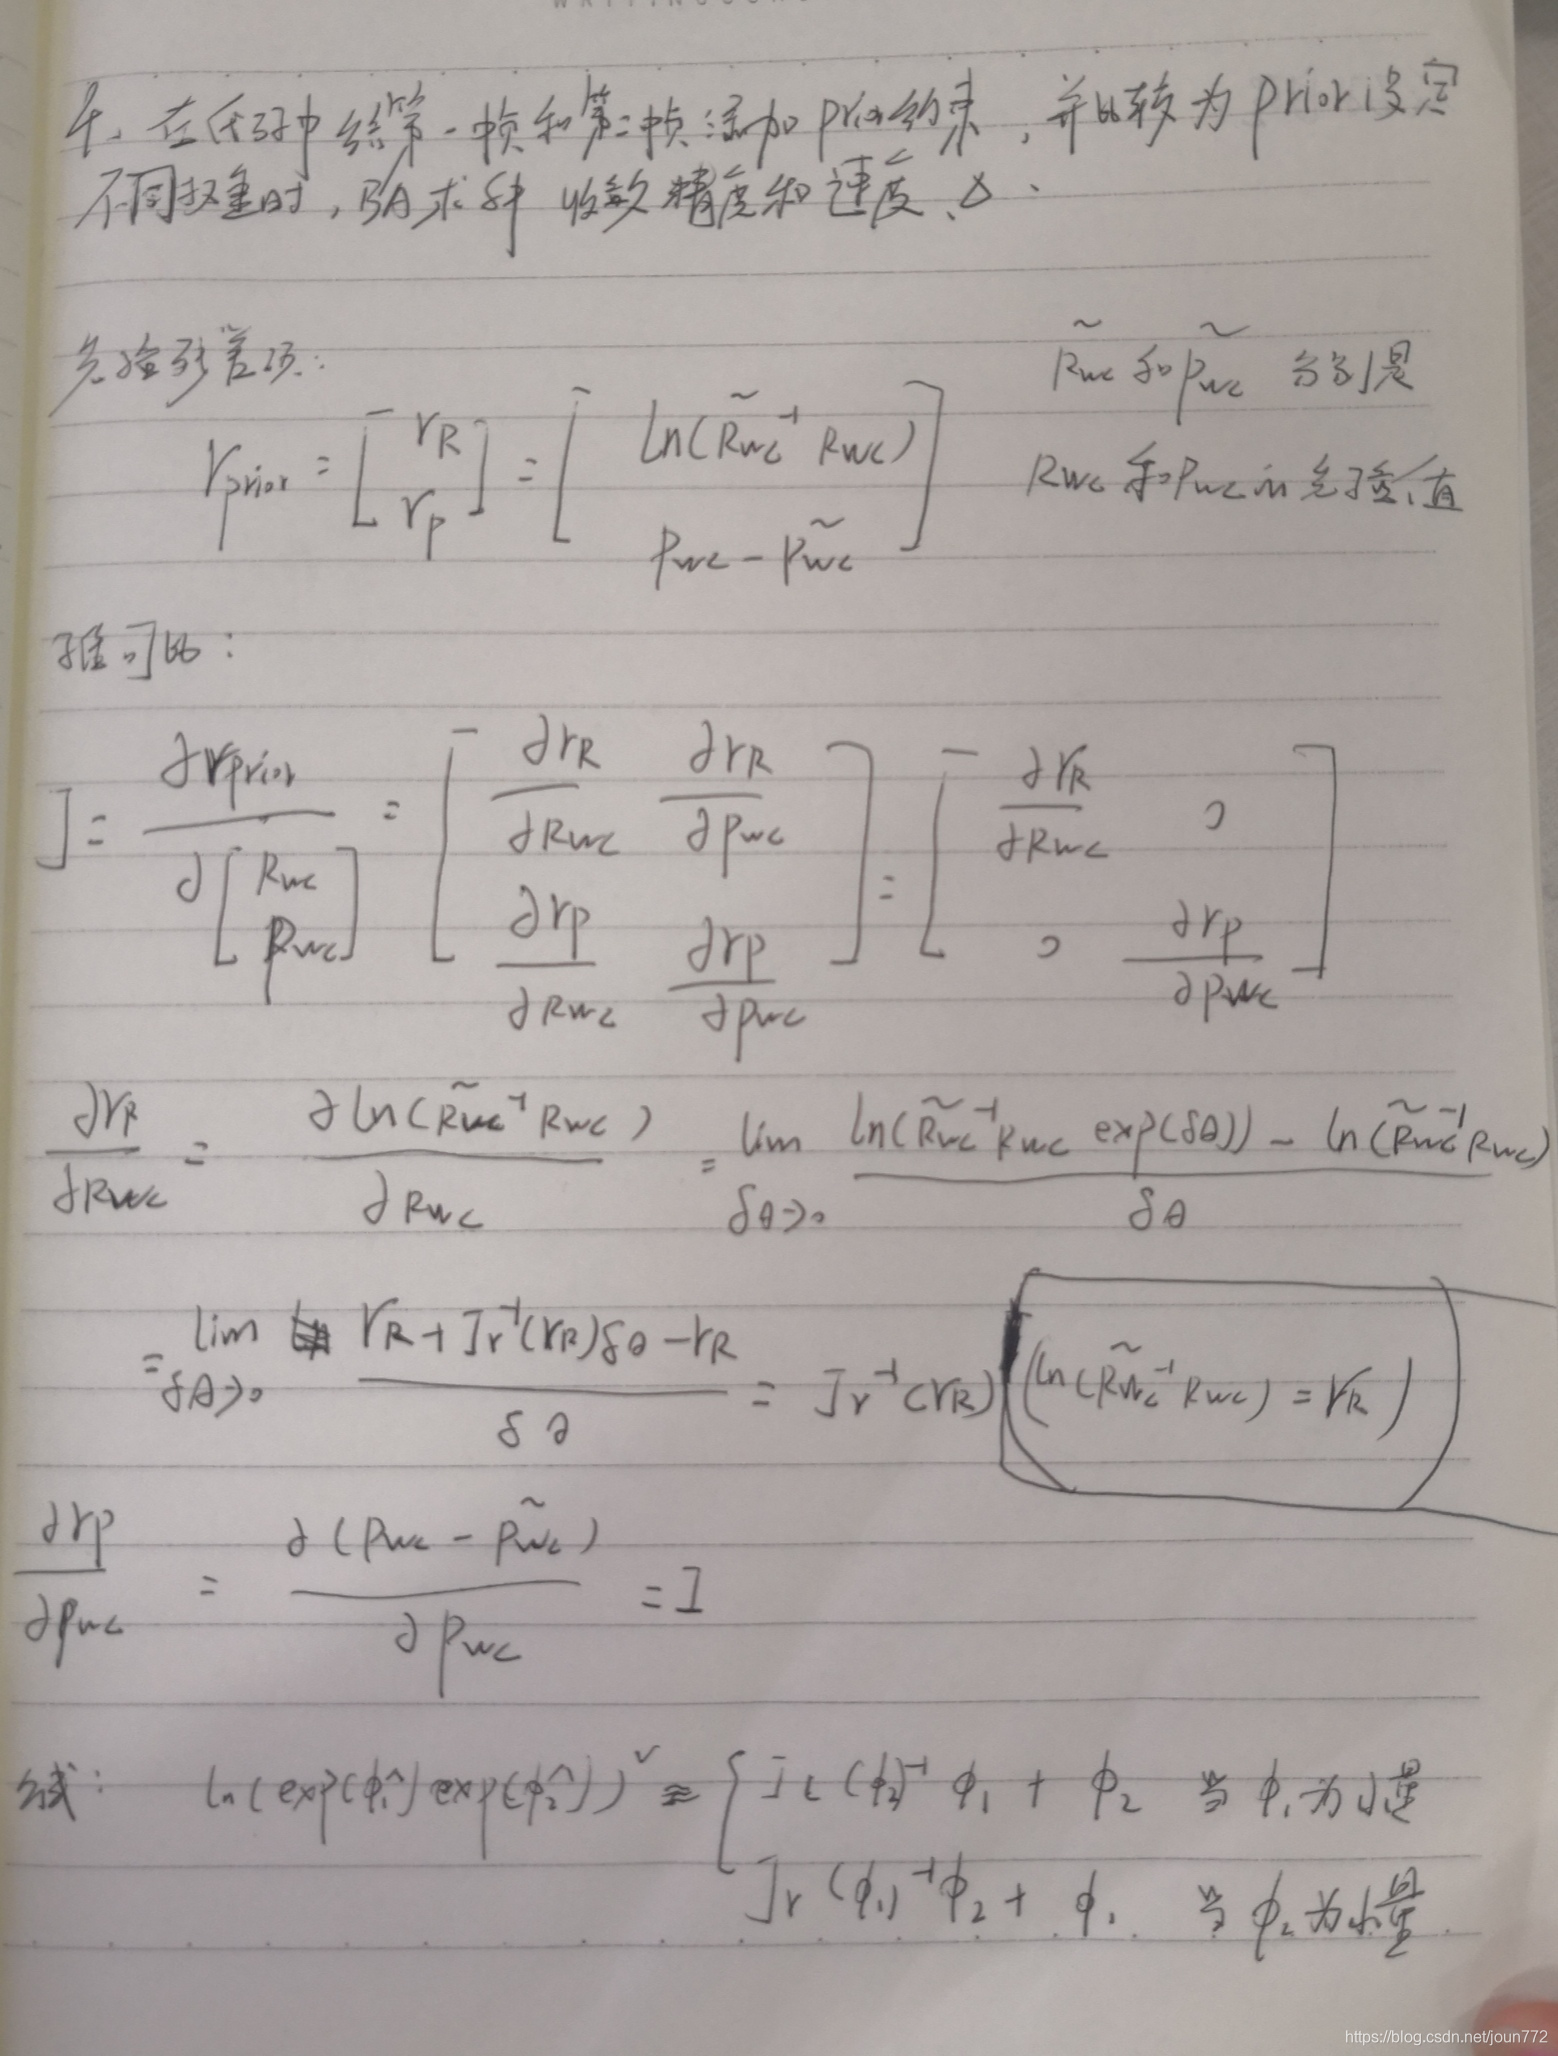 4、在代码中给第一帧和第二帧添加prior约束，并比较为prior设定
不同权重时，BA求解收敛精度和速度、
先验残差项：
r_prior = [r_R; r_p] = [ln(R̃wc⁻¹ Rwc); Pwc - P̃wc]
R̃wc 和 P̃wc 分别是
Rwc 和 Pwc 的先验值
雅可比：
J = ∂r_prior / ∂[Rwc; Pwc] = [∂r_R/∂Rwc ∂r_R/∂Pwc; ∂r_p/∂Rwc ∂r_p/∂Pwc] = [∂r_R/∂Rwc 0; 0 ∂r_p/∂Pwc]
∂r_R/∂Rwc = ∂ln(R̃wc⁻¹ Rwc)/∂Rwc = lim δθ→0 (ln(R̃wc⁻¹ Rwc exp(δθ)) - ln(R̃wc⁻¹ Rwc))/δθ
= lim δθ→0 (r_R + Jr⁻¹(r_R)δθ - r_R)/δθ = Jr⁻¹(r_R) (ln(R̃wc⁻¹ Rwc) = r_R)
∂r_p/∂Pwc = ∂(Pwc - P̃wc)/∂Pwc = I
ln(exp(ϕ₁^)exp(ϕ₂^))^∨ ≈ { J_L(ϕ₂)⁻¹ϕ₁ + ϕ₂ 当ϕ₁为小量
Jr(ϕ₁)⁻¹ϕ₂ + ϕ₁ 当ϕ₂为小量
https://blog.csdn.net/joun772